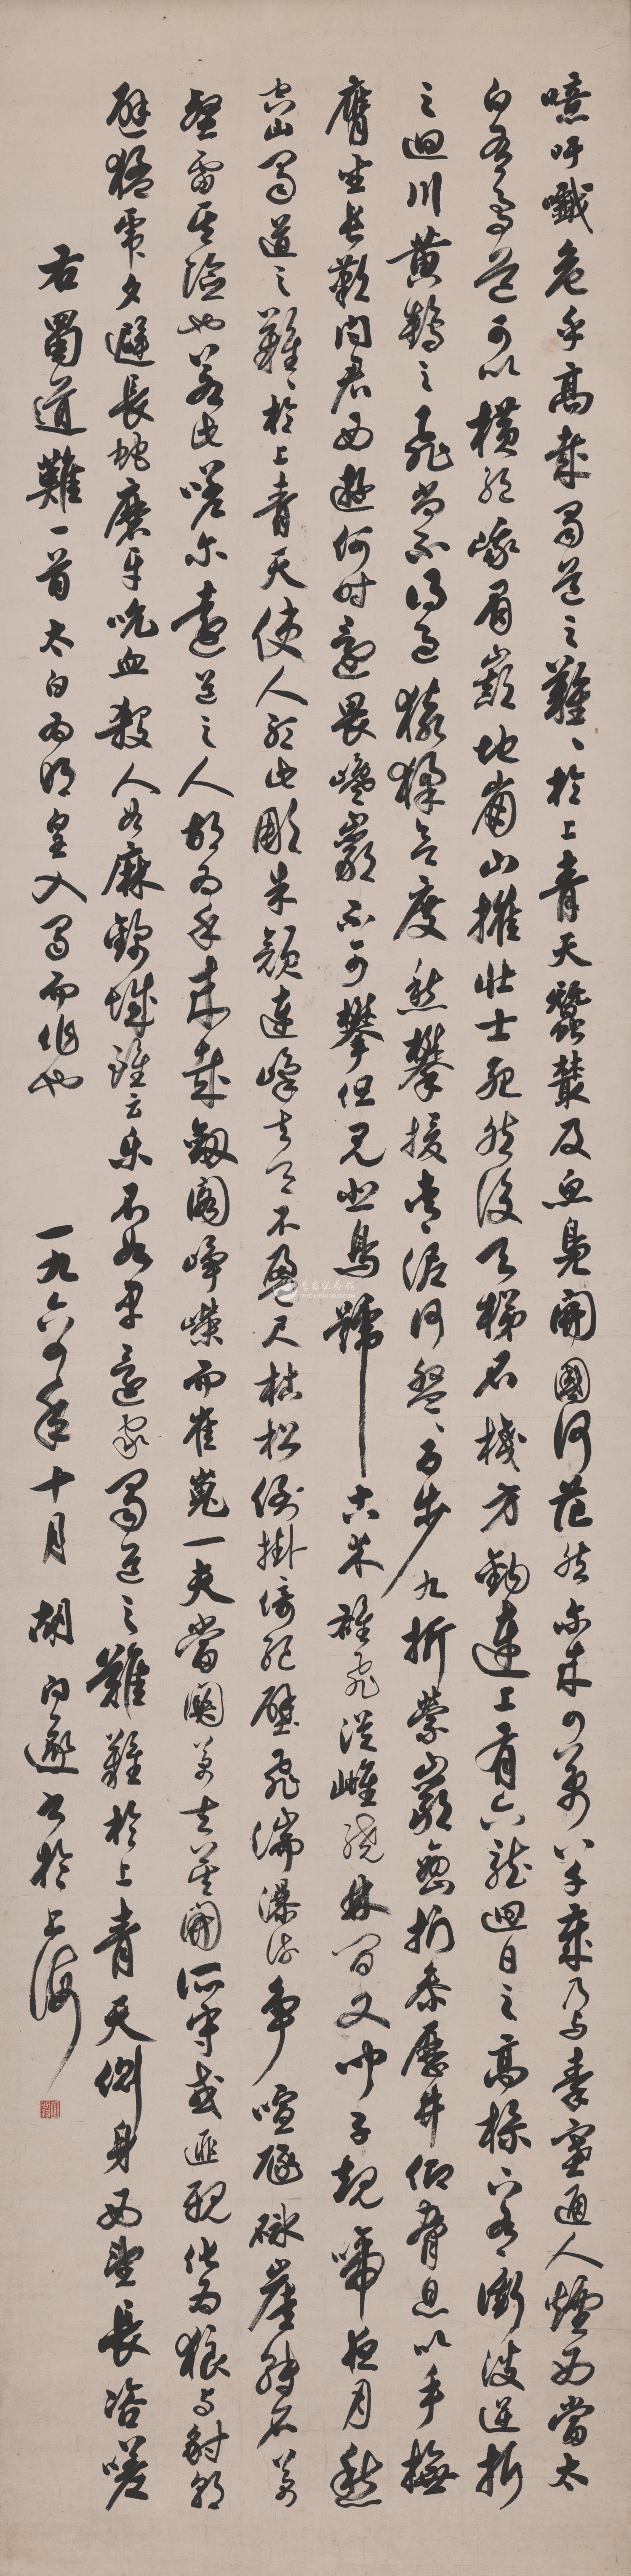 噫吁嚱危乎高哉蜀道之難難於上青天蠶叢及魚鳧開國何茫然尔来四萬八千歲乃与秦塞通人煙西當太
白有鳥道可以横絶峨眉巔地崩山摧壯士死然後天梯石棧方鉤連上有六龍迴日之高標下有衝波逆折
之迴川黄鶴之飛尚不得過猿猱欲度愁攀援青泥何盤盤百步九折縈巖巒捫參歷井仰脅息以手撫
膺坐長歎問君西遊何時還畏巉巖不可攀但見悲鳥號古木雄飛從雌繞林間又聞子規啼夜月愁
空山蜀道之難難於上青天使人聽此凋朱顔連峰去天不盈尺枯松倒掛倚絶壁飛湍瀑流争喧豗砯崖轉石萬
壑雷其險也若此嗟尔遠道之人胡为乎来哉劔閣峥嶸而崔嵬一夫當關萬夫莫開所守或匪親化为狼与豺朝
避猛虎夕避長蛇磨牙吮血殺人如麻錦城雖云樂不如早還家蜀道之難難於上青天側身西望長咨嗟
右蜀道難一首太白为明皇入蜀而作也
一九六四年十月胡问遂书於上海
李白纪念馆
THE LIBAI MUSEUM